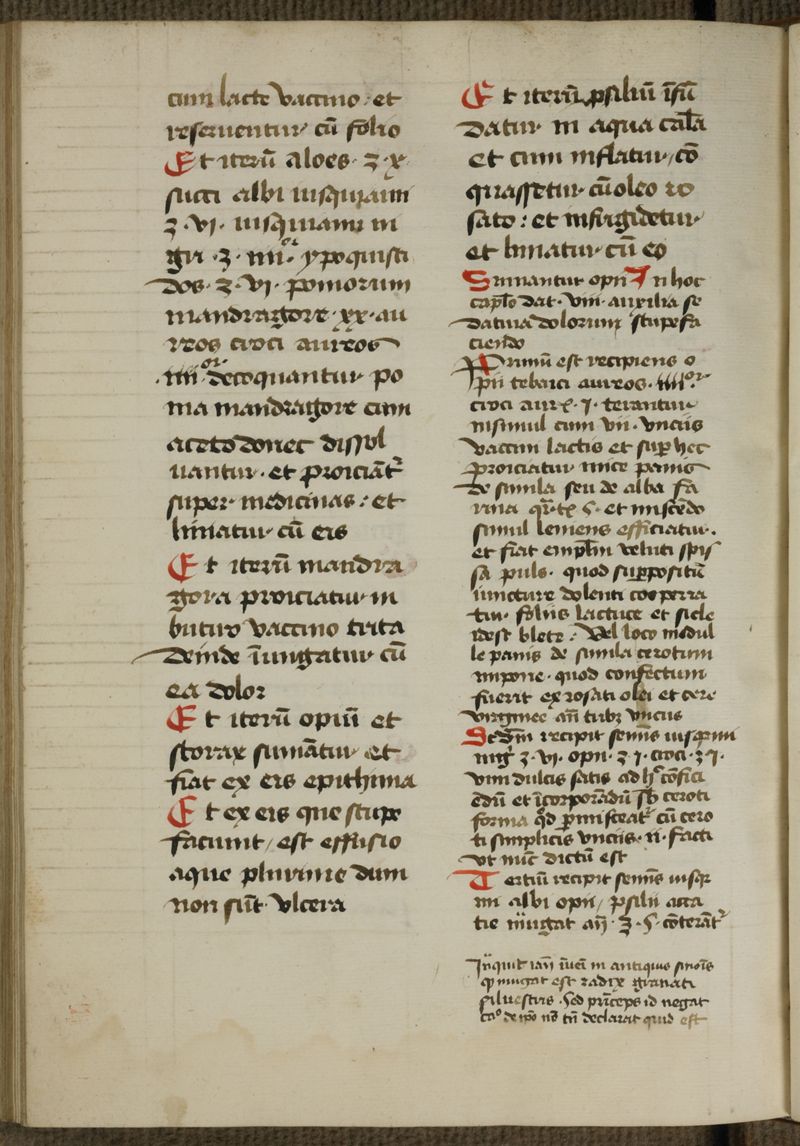 cum lacte vaccino · et
reserventur cū folio
Et iterū aloes · ʒ · x
succi albi iusquiami
ʒ · vj · iusquiami ni
gri · ʒ · iiii · ypoquisti
dos · ʒ · vj · pomorum
mandragore · xx · au
reos croci aureos
· iiii^or · decoquantur po
ma mandragore cum
aceto donec dissol
uantur · et proiciāt̄
super medicinas : et
liniatur cū eis
Et iterū mandra
gora proiciatur in
butiro vaccino trita
deinde īungatur cū
ea dolor
Et iterū opiū et
storax sumātur et
fiat ex eis epithima
Et ex eis que stupe
faciunt / est effusio
aque plurime dum
non sūt vlcera
Et iterū psiliū īfū
datur in aqua calīa
et cum inflatur / cō
quassetur cū oleo ro
sato : et infrigidetur
et liniatur cū eo
Sumantur opii In hoc
capl̄o dat · viii · auxilia se
datiua dolorum stupefa
ciendo
Primū est recipiens o
pii tebaici aureos · iiii^or ·
croci aur̄ · j · terantur
insimul cum vii · vnciis
vaccini lactis et sup hec
proiciatur mice panis
de simila seu de alba fa
rina et miscēdo
simul leniens efficiatur ·
et fiat emplm̄ veluti spis
sa puls · quod suppositū
iuncture dolenti cooperia
tur foliis lactuce et sicle
idest blete : Vel loco medul
le panis de simila cerotum
impone · quod confectum
fuerit ex rosati olei et cere
virginee añ tribȝ vnciis
Scdm̄ recipit semīs iusqami
nigͥ ʒ · vj · opii · ʒ j · croci · ʒ j ·
vini dulcis satis ad hͦ cōfici
ēdū et īcorporādū sb ceroti
forma qd̄ pmisceat̄ cū cero
ti simplicis vnciis · ii · facti
vt nūc dictū est
Tertiū recipit semīs iusq̄
mi albi opii / psilii acca
tie mugat añ · ʒ · s · cōterāt̄
in antiquis sinoīs
q mugat est radix granati
siluestris · Sed prīceps id negat
declarat quid est